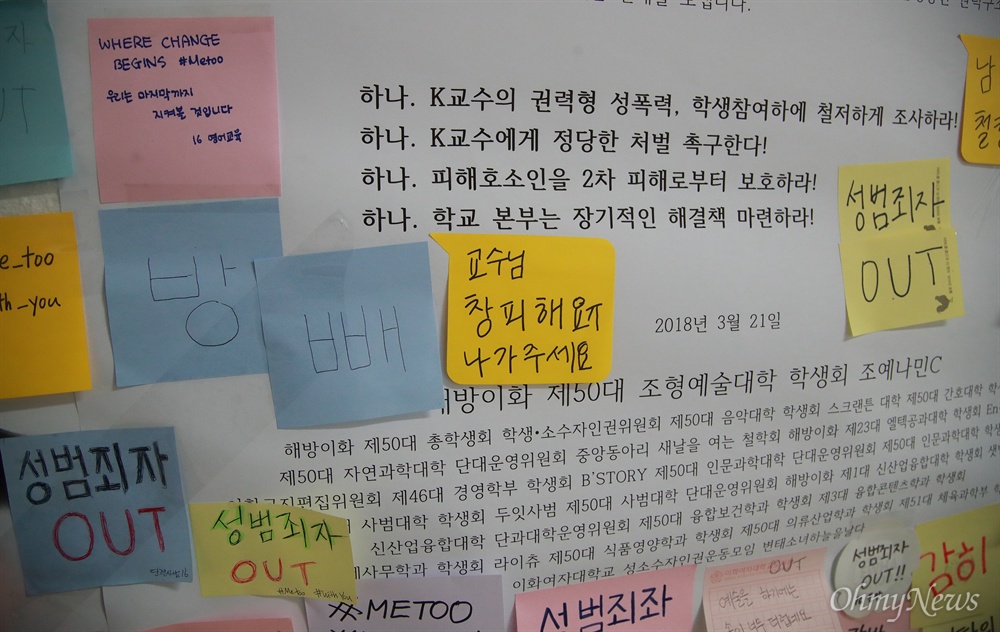 자
UT
WHERE CHANGE
BEGINS #Metoo
우리는 마지막까지
지켜볼 것입니다
16 영어교육
하나. K교수의 권력형 성폭력, 학생참여하에 철저하게 조사하라!
하나. K교수에게 정당한 처벌 촉구한다!
하나. 피해호소인을 2차 피해로부터 보호하라!
하나. 학교 본부는 장기적인 해결책 마련하라!
남
성범죄자
OUT
e_too
th_you
방
빼
교수님
창피해요
나가주세요
2018년 3월 21일
해방이화 제50대 조형예술대학 학생회 조예나민C
해방이화 제50대 총학생회 학생·소수자인권위원회 제50대 음악대학 학생회 스크랜튼 대학 제50대 간호대학 학
제50대 자연과학대학 단대운영위원회 중앙동아리 새날을 여는 철학회 해방이화 제23대 엘텍공과대학 학생회 En
편집위원회 제46대 경영학부 학생회 B'STORY 제50대 인문과학대학 단대운영위원회 제50대 인문과학대학 학생
사범대학 학생회 두잇사범 제50대 사범대학 단대운영위원회 해방이화 제1대 신산업융합대학 학생회
신산업융합대학 단과대학운영위원회 제50대 융합보건학과 학생회 제3대 융합콘텐츠학과 학생회
사무학과 학생회 라이츄 제50대 식품영양학과 학생회 제50대 의류산업학과 학생회 제51대 체육과학부
이화여자대학교 성소수자인권운동모임 변태소녀하늘을날다
성범죄자
OUT
성범죄자
OUT
#Metoo #WithYou
#METOO
성범죄좌
OUT
예술을 하기에는
성범죄자
OUT!!
감히
OhmyNews